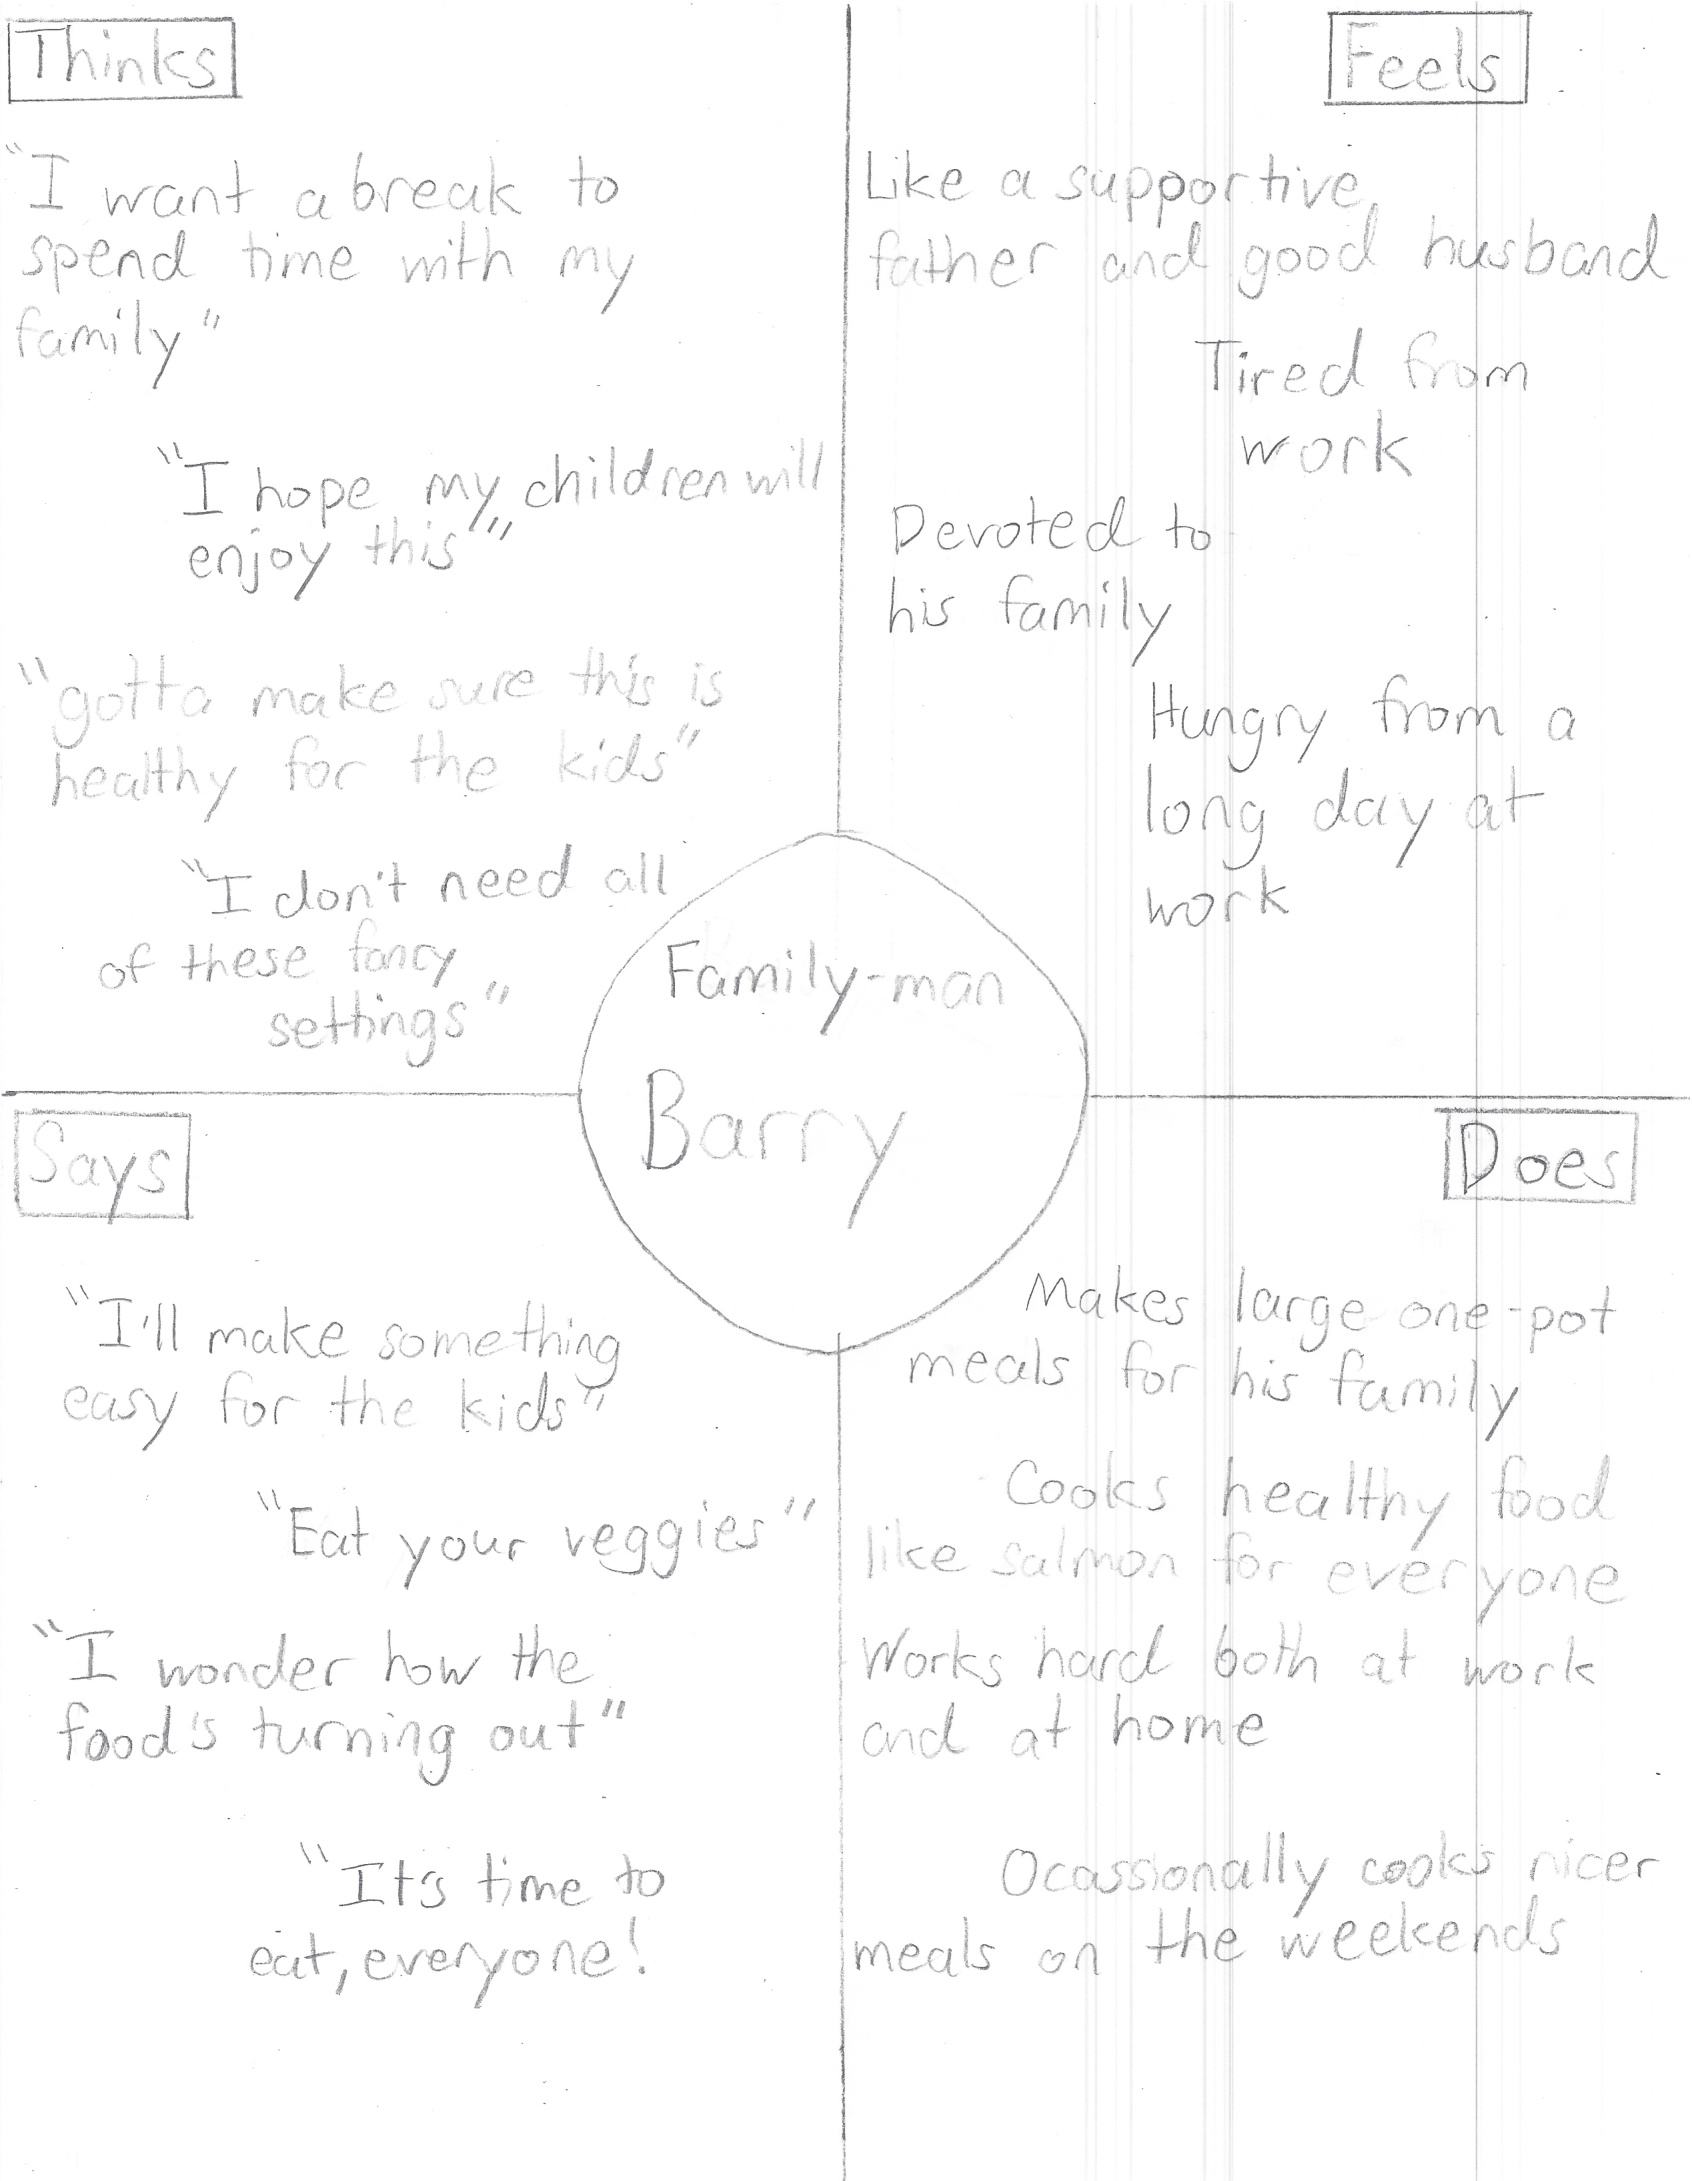 Thinks
"I want a break to
spend time with my
family"
"I hope my children will
enjoy this"
"gotta make sure this is
healthy for the kids"
"I don't need all
of these fancy
settings"
Feels
Like a supportive
father and good husband
Tired from
work
Devoted to
his family
Hungry from a
long day at
work
Family-man
Barry
Says
"I'll make something
easy for the kids"
"Eat your veggies"
"I wonder how the
food's turning out"
"It's time to
eat, everyone!
Does
Makes large one-pot
meals for his family
Cooks healthy food
like salmon for everyone
Works hard both at work
and at home
Ocassionally cooks nicer
meals on the weekends